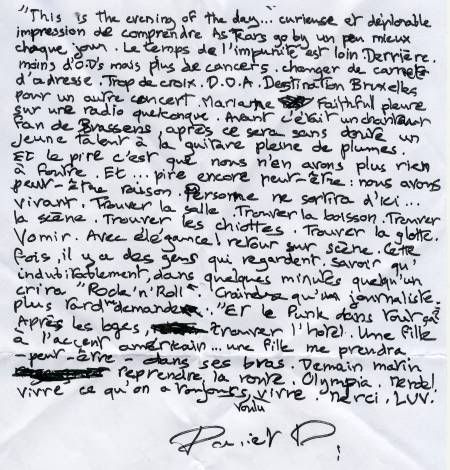 "This is the evening of the day... curieuse et déplorable
impression de comprendre As Tears go by un peu mieux
chaque jour. Le temps de l'impunité est loin. Derrière.
moins d'O.D's mais plus de cancers. changer de carnets
d'adresse. Trop de croix. D.O.A. Destination Bruxelles
pour un autre concert. Marianne Faithful pleure
sur une radio quelconque. Avant c'était un chanteur
fan de Brassens, après ce sera sans doute un
jeune talent à la guitare pleine de plumes.
Et le pire c'est que nous n'en avons plus rien
à foutre. Et... pire encore peut-être : nous avons
peut-être raison. Personne ne sortira d'ici...
vivant. Trouver la salle. Trouver la boisson. Trouver
la scène. Trouver les chiottes. Trouver la glotte.
Vomir. Avec élégance! retour sur scène. Cette
fois, il y a des gens qui regardent. savoir qu'
indubitablement, dans quelques minutes quelqu'un
crira "Rock'n'Roll". Craindre qu'un journaliste
plus tard demande "Et le Punk dans tout ça"
Après les bacs, trouver l'hotel. Une fille
à l'accent américain... une fille me prendra
- peut-être - dans ses bras. Demain matin
reprendre la route. Olympia. Merde!
vivre ce qu'on a toujours voulu vivre. Merci. LUV.
Daniel D.